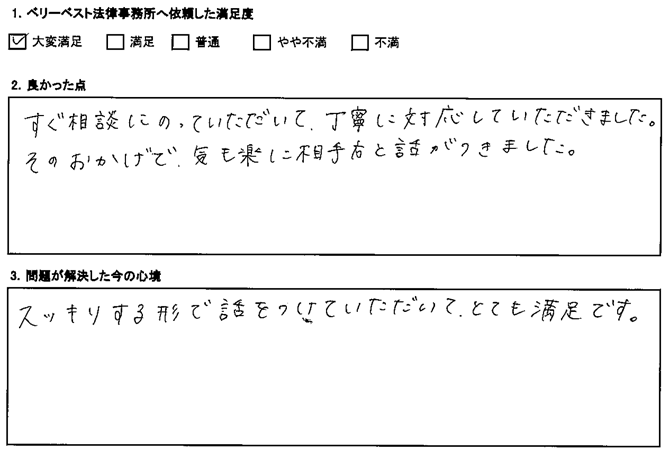 1. ベリーベスト法律事務所へ依頼した満足度
☑ 大変満足 □ 満足 □ 普通 □ やや不満 □ 不満
2. 良かった点
すぐ相談にのっていただいて、丁寧に対応していただきました。
そのおかげで、気も楽に相手方と話がつきました。
3. 問題が解決した今の心境
スッキリする形で話をつけていただいて、とても満足です。